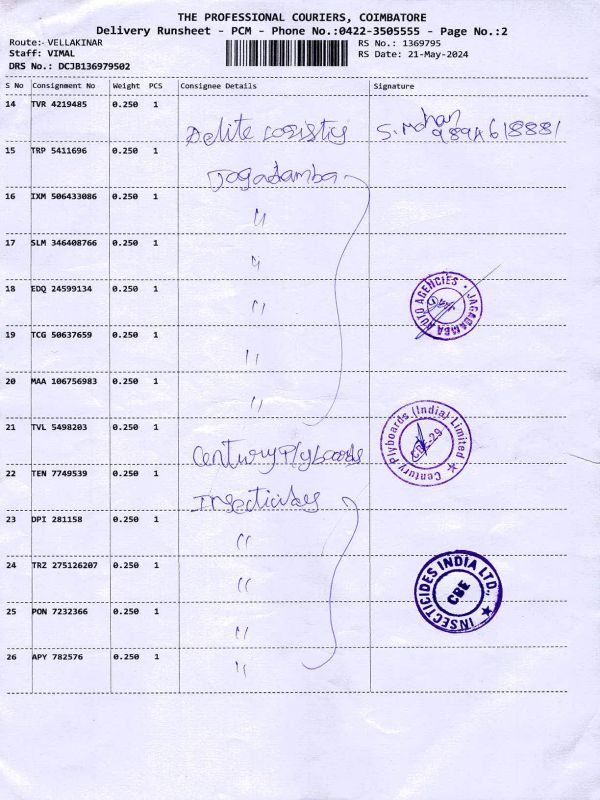 THE PROFESSIONAL COURIERS, COIMBATORE
Delivery Runsheet - PCM - Phone No.:0422-3505555 - Page No.:2
Route:- VELLAKINAR
RS No.: 1369795
Staff: VIMAL
RS Date: 21-May-2024
DRS No.: DCJB136979502
S No Consignment No Weight PCS Consignee Details Signature
14 TVR 4219485 0.250 1 Delite Logistics S. Mohan
9894618881
15 TRP 5411696 0.250 1 Jagadamba
16 IXM 506433086 0.250 1 "
17 SLM 346408766 0.250 1 "
18 EDQ 24599134 0.250 1 "
JAGADAMBA AUTO AGENCIES
19 TCG 50637659 0.250 1 "
20 MAA 106756983 0.250 1 "
21 TVL 5498203 0.250 1 Century Plyboards
Century Plyboards (India) Limited
CBE-29
22 TEN 7749539 0.250 1 Insecticides
23 DPI 281158 0.250 1 "
24 TRZ 275126207 0.250 1 "
INSECTICIDES INDIA LTD.,
CBE
25 PON 7232366 0.250 1 "
26 APY 782576 0.250 1 "